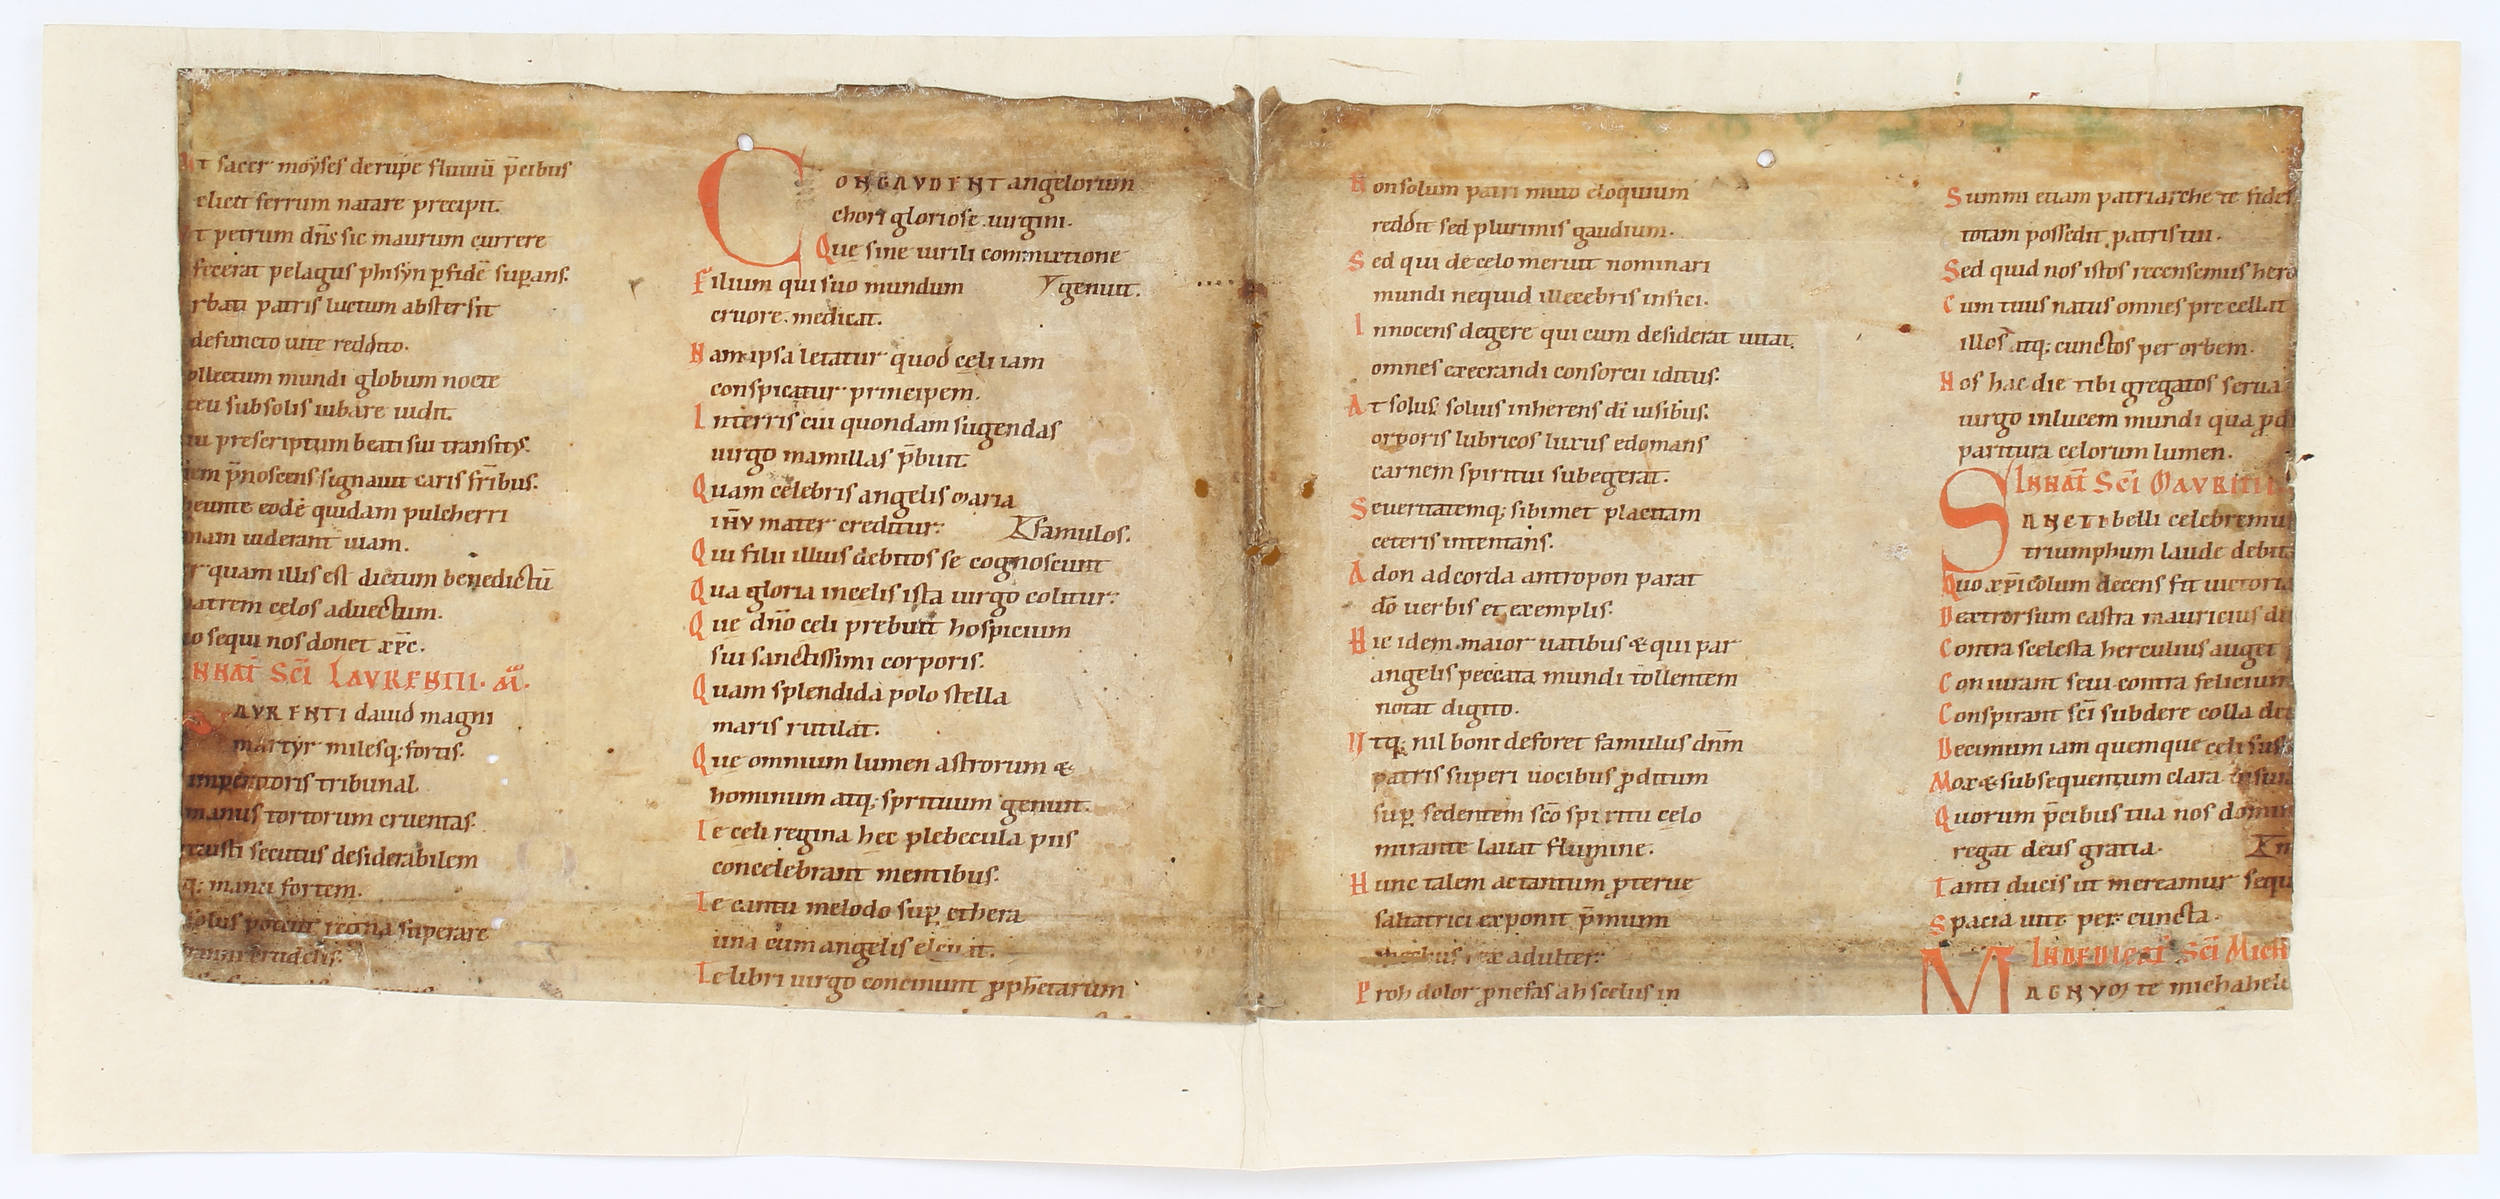 t sacer moyses de rupe fluuiū p̄cibus
elicit ferrum natare precipit.
t petrum dn̄s sic maurum currere
fecerat pelagus phisyn ꝑ fidē suꝑans.
rbati patris luctum abstersit
defuncto uite reddito.
ollectum mundi globum nocte
ceu sub solis iubare uidit.
prescriptum beati sui transitꝰ.
em p̄noscens signauit caris fr̄ibus.
eunte eodē quidam pulcherri
mam uiderant uiam.
r quam illis est dictum benedictū
atrem celos aduectum.
o sequi nos donet xp̄c.
INNAT̄ SCĪ LAVRENTII. M̄.
AVRENTI dauid magni
martyr milesq; fortis.
imperatoris tribunal
manus tortorum cruentas.
secutus desiderabilem
q; manu fortem.
solus potuit regna superare
tyranni crudelis.
CONGAVDENT angelorum
chori gloriose uirgini.
Que sine uirili commixtione
Filium qui suo mundum genuit.
cruore medicat.
Nam ipsa letatur quod celi iam
conspicatur principem.
In terris cui quondam sugendas
uirgo mamillas p̄buit.
Quam celebris angelis maria
ihū mater creditur: famulos.
Qui filii illius debitos se cognoscunt
Qua gloria in celis ista uirgo colitur:
Que dn̄o celi prebuit hospicium
sui sanctissimi corporis.
Quam splendida polo stella
maris rutilat.
Que omnium lumen astrorum &
hominum atq; sprituum genuit.
Te celi regina hec plebecula piis
concelebrant mentibus.
Te cantu melodo suꝑ ethera
una cum angelis eleuat.
Te libri uirgo concinunt ꝓphetarum
Non solum patri muto eloquium
reddit sed plurimis gaudium.
Sed qui de celo meruit nominari
mundi nequid illecebris infici.
Innocens degere qui cum desiderat uitat.
omnes execrandi consorcii iditus.
At solus solius inherens dī uisibus.
orporis lubricos luxus edomans
carnem spiritui subegerat.
Seueritatemq; sibimet placitam
ceteris intentans.
Adon ad corda antropon parat
dō uerbis et exemplis.
Hic idem maior uatibus & qui par
angelis peccata mundi tollentem
notat digito.
Vtq; nil boni deforet famulus dnm̄
patris superi uocibus ꝓditum
suꝑ sedentem scō spiritu celo
mirante lauat flumine.
Hunc talem ac tantum ꝓterue
saltatrici exponit p̄mium
mechus rex adulter:
Proh dolor ꝓ nefas ah scelus in
Summi etiam patriarche te fides
totam possedit patris tui.
Sed quid nos istos recensemus hero
Cum tuus natus omnes precellat
illos atq; cunctos per orbem.
Nos hac die tibi gregatos serua
uirgo in lucem mundi qua ꝓd
paritura celorum lumen.
INNAT̄ SCĪ MAVRITII
SANCTI belli celebremus
triumphum laude debit
Quo xp̄icolum decens fit uictoria
Dextrorsum castra mauricius du
Contra scelesta herculius auget
Coniurant seui contra felicium
Conspirant scī subdere colla dei
Decimum iam quemque celi sus
Mox & subsequentum clara
Quorum p̄cibus tua nos domin
regat deus gratia.
Tanti ducis ut mereamur sequ
Spacia uite per: cuncta.
IN DEDICAT̄ SCĪ MICH
MAGNVM te michahele